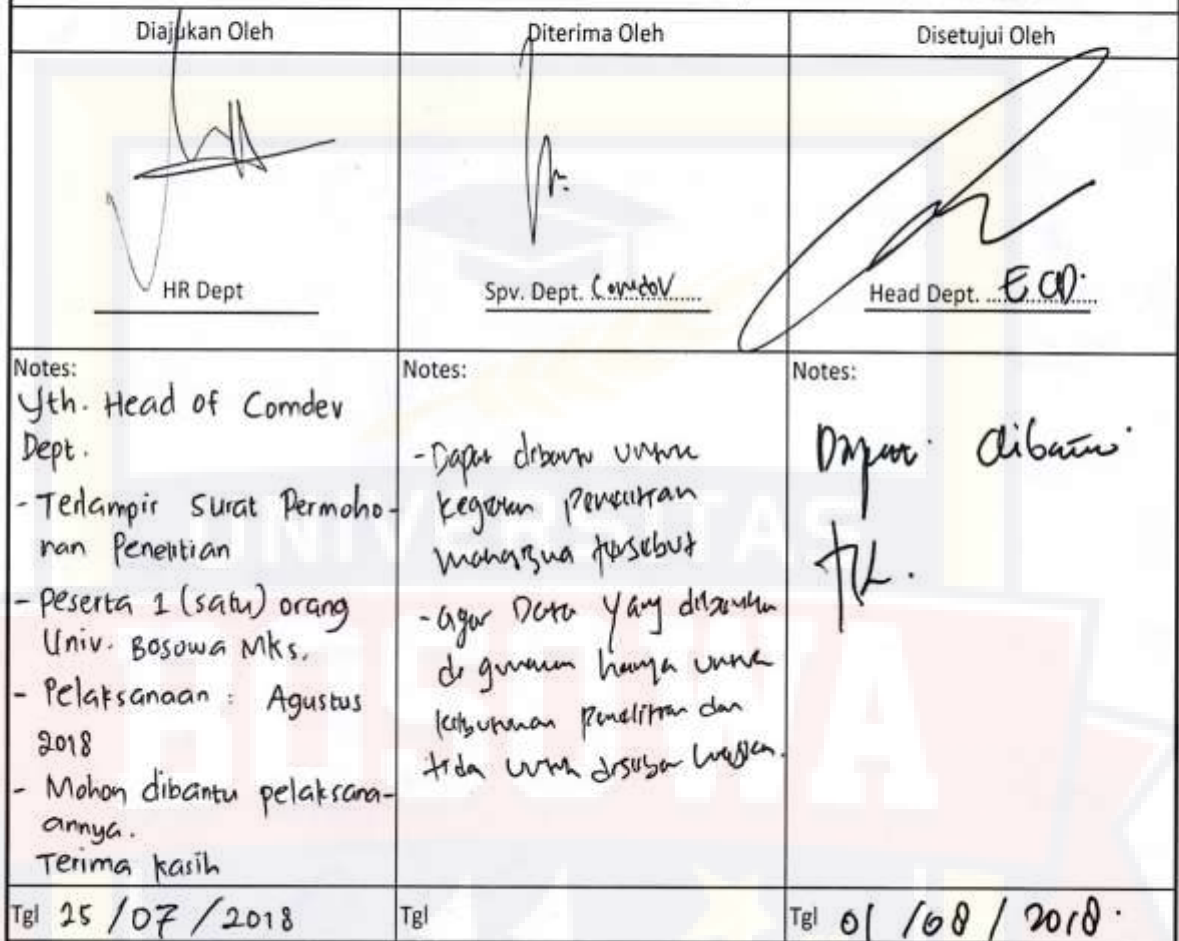 Diajukan Oleh
Diterima Oleh
Disetujui Oleh
HR Dept
Spv. Dept. Comdev
Head Dept. ECD.
Notes:
Yth. Head of Comdev
Dept.
- Terlampir Surat Permoho-
nan Penelitian
- Peserta 1 (satu) orang
Univ. Bosowa Mks.
- Pelaksanaan : Agustus
2018
- Mohon dibantu pelaksana-
annya.
Terima kasih
Notes:
- Dapat dibantu untuk
kegiatan penelitian
mahasiswa tersebut
- agar Data yang diberikan
di gunakan hanya untuk
kebutuhan penelitian dan
tida untuk disebar luaskan.
Notes:
Dapat dibantu
Tgl 25 / 07 / 2018
Tgl
Tgl 01 / 08 / 2018
UNIVERSITAS
BOSOWA